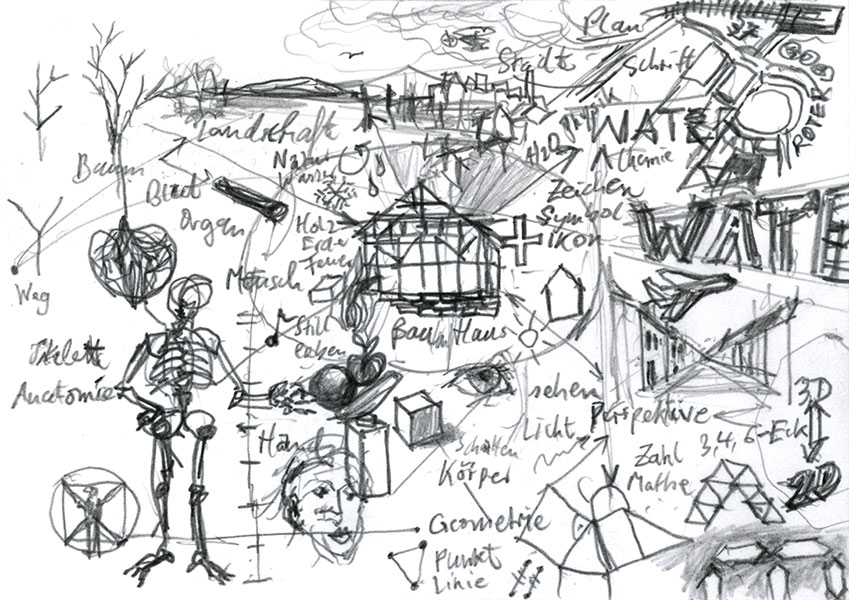 Plan
Stadt
Schrift
ROTER
Landschaft
Natur
Wasser
H2O
WATER
Chemie
Baum
Blut
Organ
Zeichen
Symbol
ikon
Holz
Erde
Feuer
WATE
Mensch
Weg
Still
leben
Baum Haus
Skelett
Anatomie
sehen
Licht
Perspektive
3D
Hand
Schatten
Körper
Zahl
Mathe
3,4,6-Eck
2D
Geometrie
Punkt
Linie